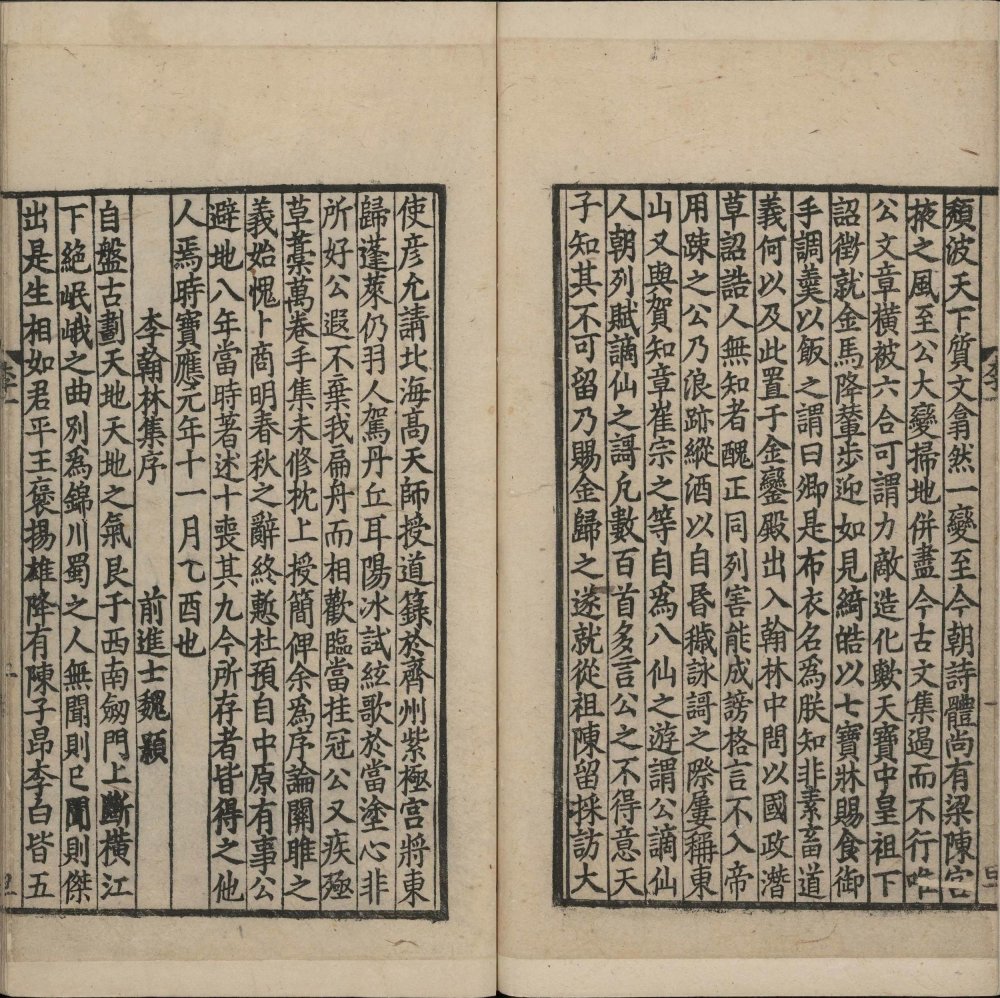 頽波天下質文翕然一變至今朝詩體尚有梁陳宮
掖之風至公大變掃地併盡今古文集遏而不行唯
公文章橫被六合可謂力敵造化歟天寶中皇祖下
詔徵就金馬降輦步迎如見綺皓以七寶牀賜食御
手調羹以飯之謂曰卿是布衣名爲朕知非素畜道
義何以及此置于金鑾殿出入翰林中問以國政潛
草詔誥人無知者醜正同列害能成謗格言不入帝
用踈之公乃浪跡縱酒以自昏穢詠謌之際屢稱東
山又與賀知章崔宗之等自爲八仙之遊謂公謫仙
人朝列賦謫仙之謌凡數百首多言公之不得意天
子知其不可留乃賜金歸之遂就從祖陳留採訪大
使彦允請北海髙天師授道籙於齊州紫極宮將東
歸蓬萊仍羽人駕丹丘耳陽冰試絃歌於當塗心非
所好公遐不棄我扁舟而相歡臨當挂冠公又疾殛
草藁萬卷手集未修枕上授簡俾余爲序論關雎之
義始愧卜商明春秋之辭終慙杜預自中原有事公
避地八年當時著述十喪其九今所存者皆得之他
人焉時寶應元年十一月乙酉也
李翰林集序 前進士魏顥
自盤古劃天地天地之氣艮于西南劒門上斷橫江
下絶岷峨之曲別爲錦川蜀之人無聞則已聞則傑
出是生相如君平王襃揚雄降有陳子昂李白皆五